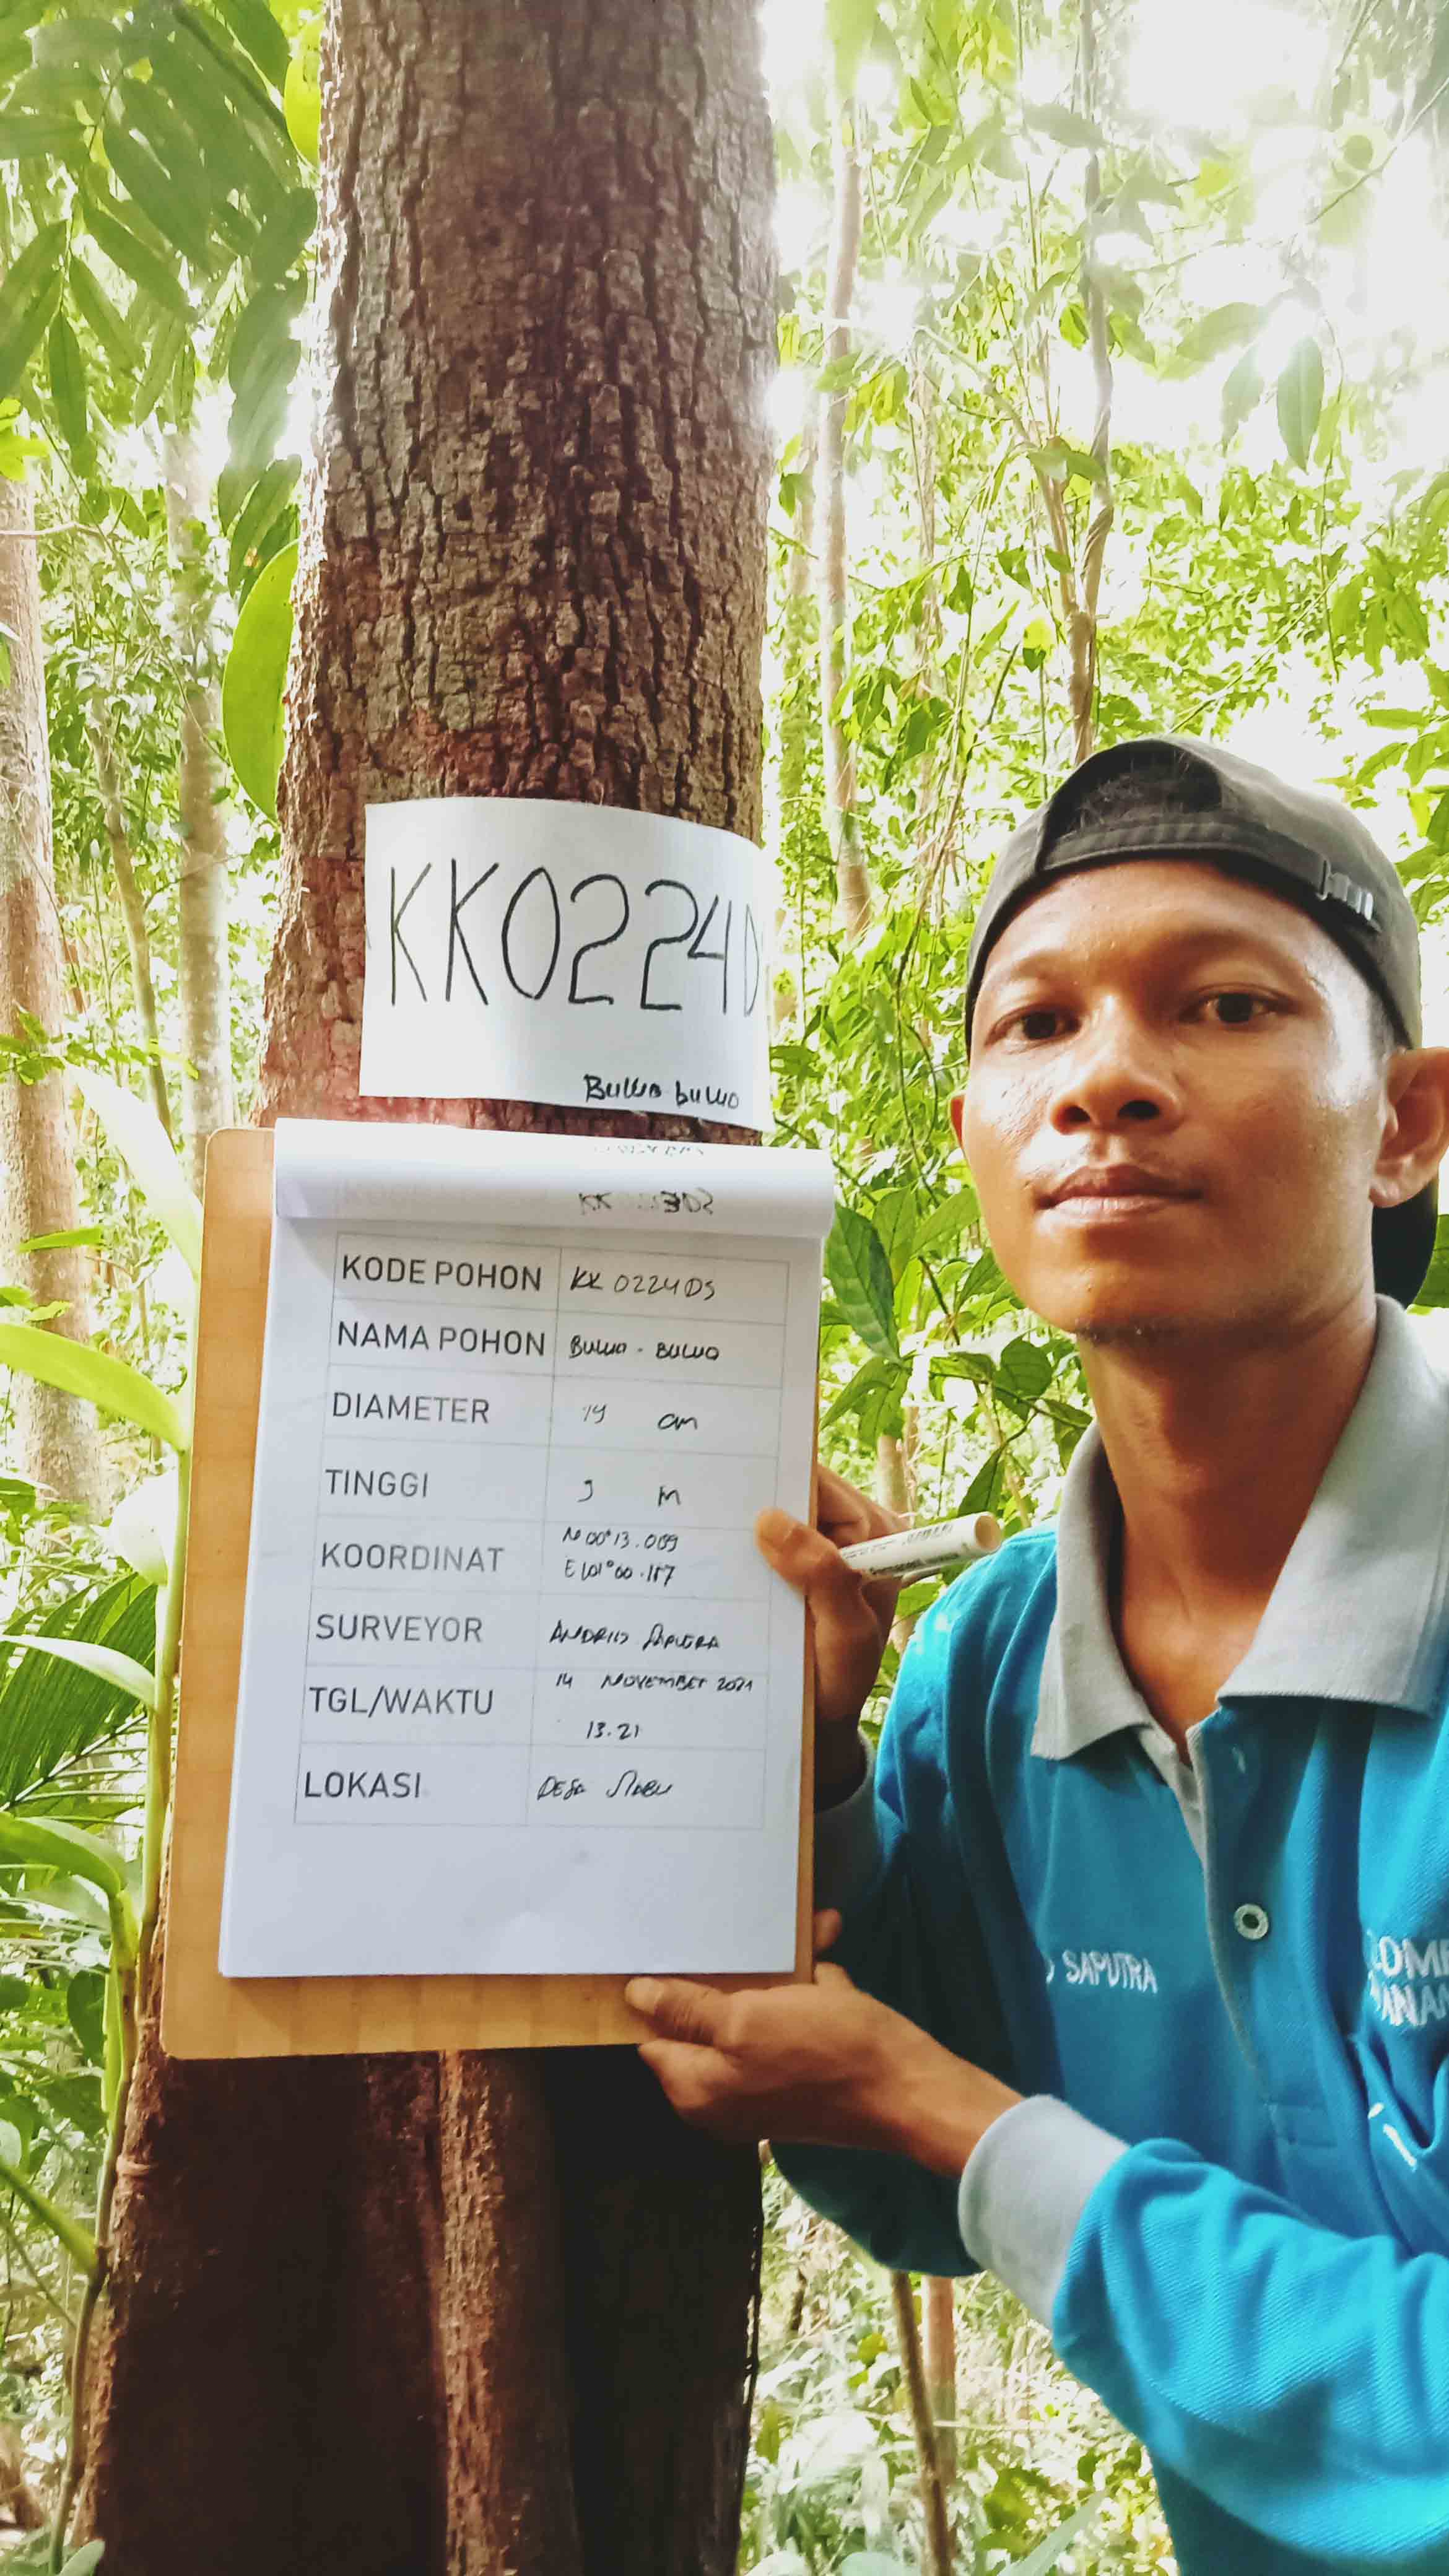 KK0224D
Buwa buwa
KODE POHON KK 0224DS
NAMA POHON BUWA - BUWA
DIAMETER 19 cm
TINGGI 9 m
KOORDINAT N 00°13.009
E 101°00.187
SURVEYOR ANDRIO SAPUTRA
TGL/WAKTU 14 NOVEMBER 2021
13.21
LOKASI DESA
O SAPUTRA